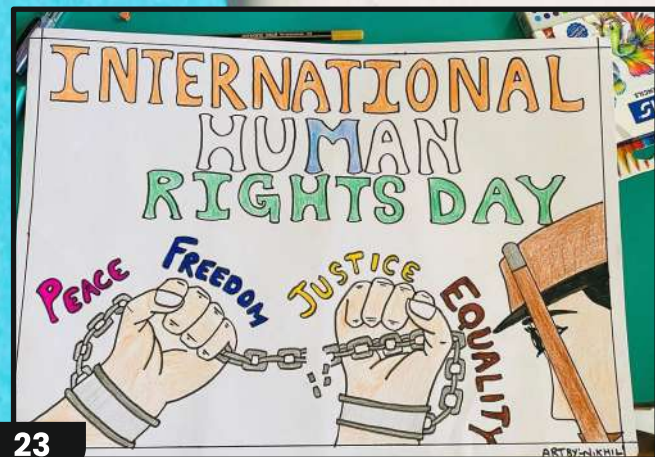 INTERNATIONAL
HUMAN
RIGHTS DAY
PEACE
FREEDOM
JUSTICE
EQUALITY
ARTBY-NIKHIL
23